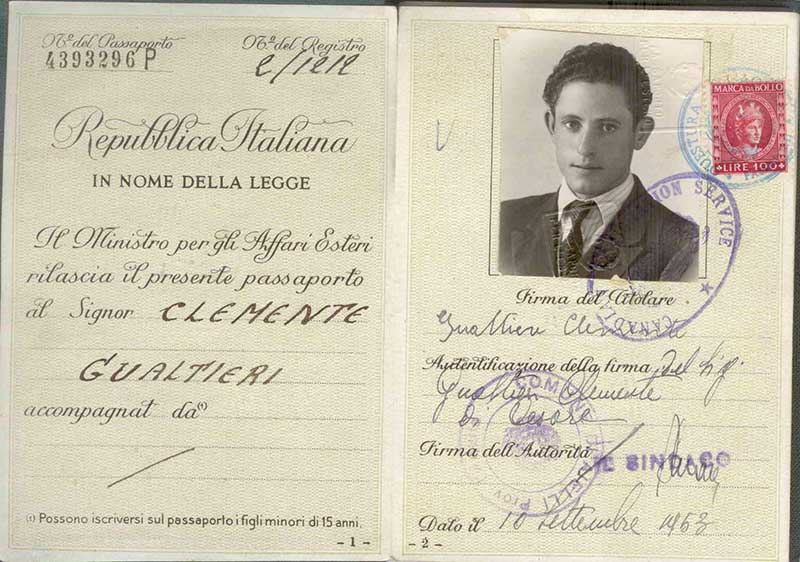 Nº del Passaporto
4393296 P
Nº del Registro
Repubblica Italiana
IN NOME DELLA LEGGE
Il Ministro per gli Affari Esteri
rilascia il presente passaporto
al Signor CLEMENTE
GUALTIERI
accompagnat da(1)
(1) Possono iscriversi sul passaporto i figli minori di 15 anni.
- 1 -
MARCA DA BOLLO
LIRE 100
QUESTURA
ION SERVICE
CANADIA
Firma del Titolare
Gualtieri Clemente
Autentificazione della firma del Sig.
Gualtieri Clemente
di Cesare
COMUN
Firma dell'Autorità
IL SINDACO
Dato il 10 settembre 1953
- 2 -